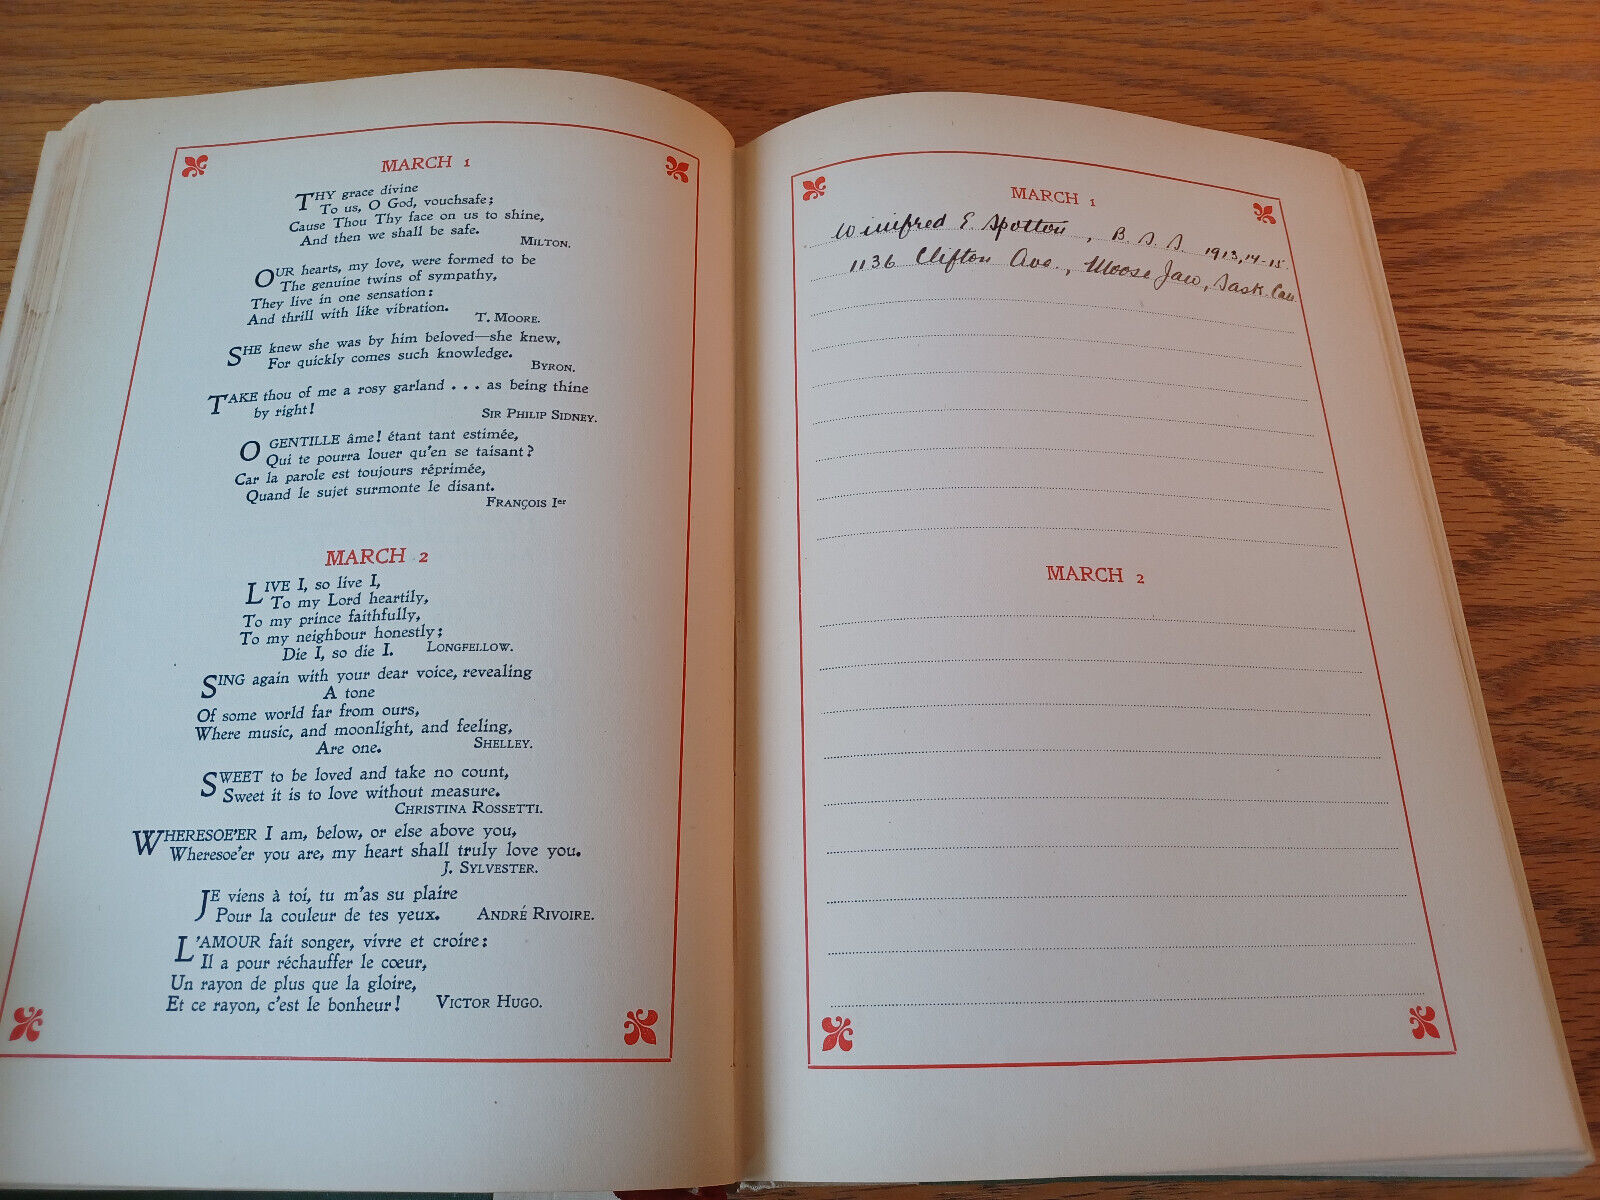 MARCH 1
THY grace divine
To us, O God, vouchsafe;
Cause Thou Thy face on us to shine,
And then we shall be safe.
MILTON.
OUR hearts, my love, were formed to be
The genuine twins of sympathy,
They live in one sensation:
And thrill with like vibration.
T. MOORE.
SHE knew she was by him beloved—she knew,
For quickly comes such knowledge.
BYRON.
TAKE thou of me a rosy garland . . . as being thine
by right!
SIR PHILIP SIDNEY.
O GENTILLE âme! étant tant estimée,
Qui te pourra louer qu'en se taisant?
Car la parole est toujours réprimée,
Quand le sujet surmonte le disant.
FRANÇOIS Ier
MARCH 2
LIVE I, so live I,
To my Lord heartily,
To my prince faithfully,
To my neighbour honestly;
Die I, so die I. LONGFELLOW.
SING again with your dear voice, revealing
A tone
Of some world far from ours,
Where music, and moonlight, and feeling,
Are one. SHELLEY.
SWEET to be loved and take no count,
Sweet it is to love without measure.
CHRISTINA ROSSETTI.
WHERESOE'ER I am, below, or else above you,
Wheresoe'er you are, my heart shall truly love you.
J. SYLVESTER.
JE viens à toi, tu m'as su plaire
Pour la couleur de tes yeux. ANDRÉ RIVOIRE.
L'AMOUR fait songer, vivre et croire:
Il a pour réchauffer le cœur,
Un rayon de plus que la gloire,
Et ce rayon, c'est le bonheur! VICTOR HUGO.
MARCH 1
Winifred E. Spotton, B. S. S. 1913, 14-15.
1136 Clifton Ave., Moose Jaw, Sask. Can.
MARCH 2